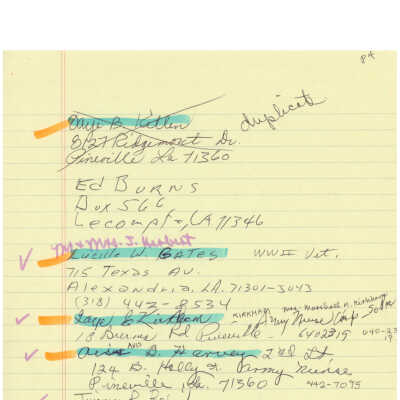 84
Faye B. Killen
duplicate
5127 Ridgemont Dr.
Pineville La 71360
Ed BURNS
Box 566
Lecompte, LA 71346
Mr & Mrs. J. Herbert
Lucille W. BATES WWII Vet.
715 Texas Av.
Alexandria, LA. 71301-5043
(318) 442-8534
Faye E Kirkham KIRKHAM Mrs. Marshall N. Kirkham
Army Nurse Corp
13 Burma Rd Pineville - 6402319
B. Harvey 2nd Lt,
124 B. Holly Army Nurse
Pineville, La. 71360 442-7095